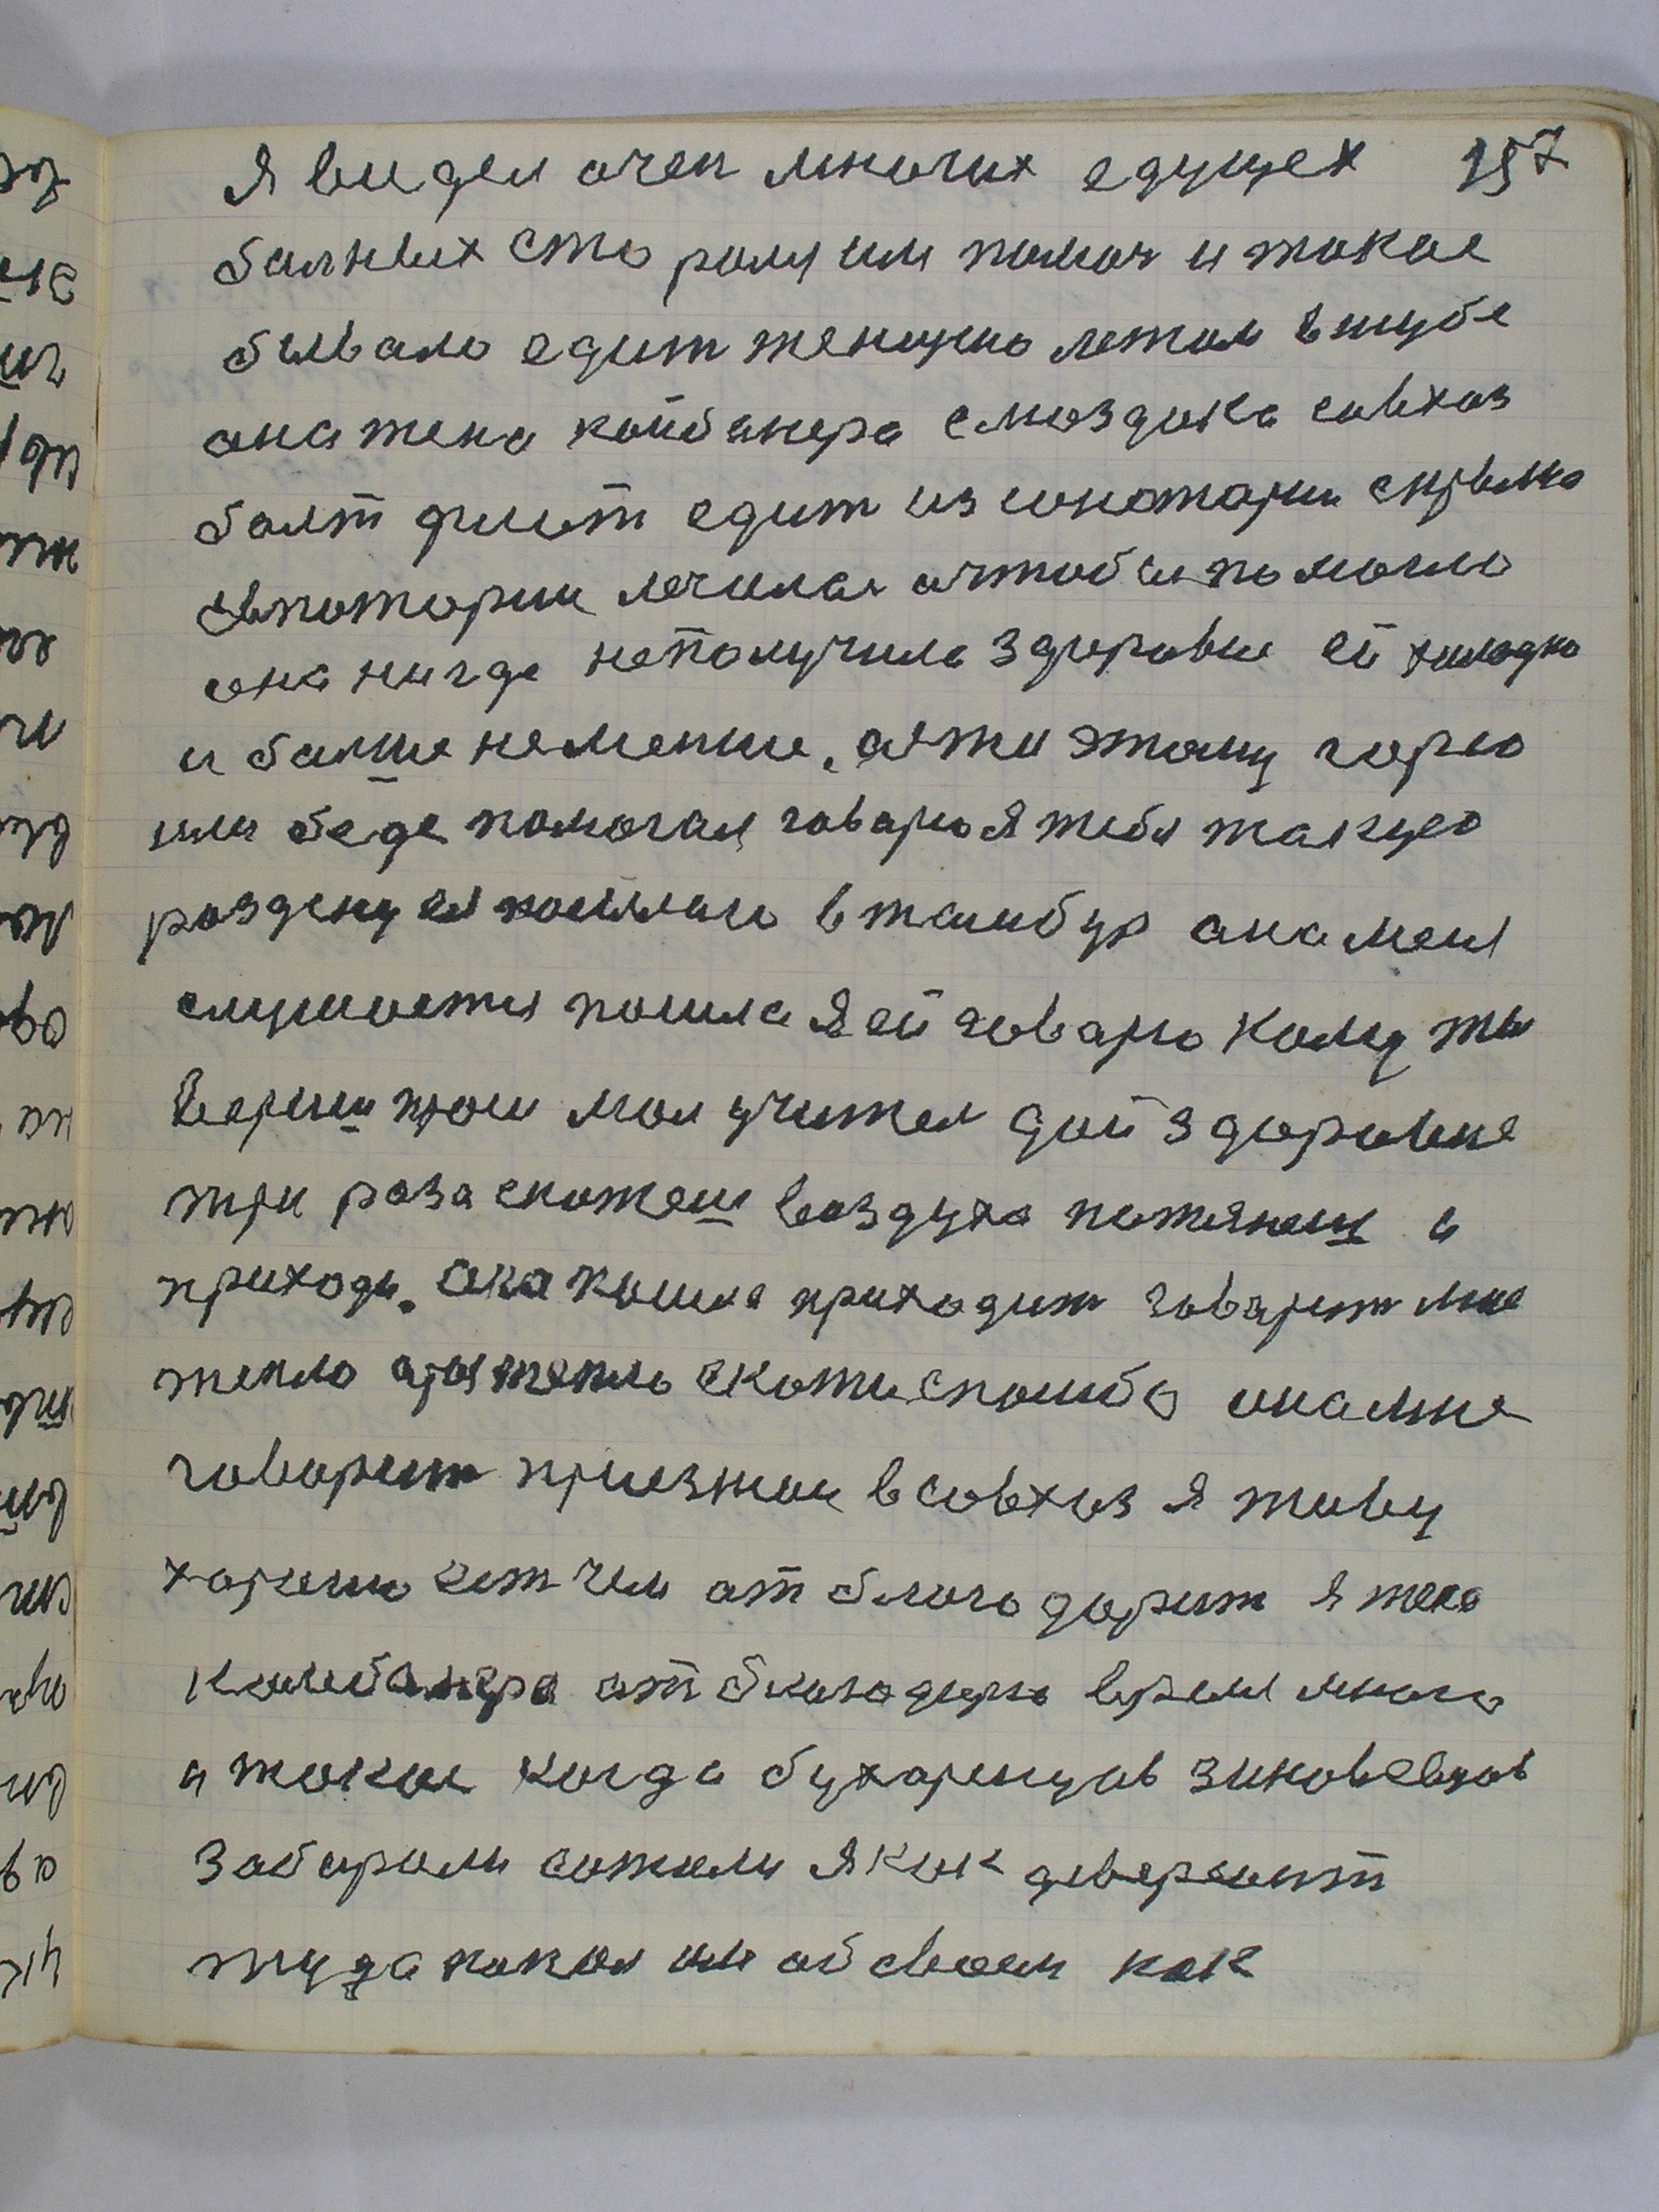 Я видел очен многих едущех 157
балных старалц им помоч и такое
бывало едит женщино летом в шубе
она жена комбаинера с моздока совхоз
балт флот едит из санотарии с крыма
Евпотории лечилас а чтобы помогло
она нигде не получила здоровие ей холодно
и балше не менше. а я то этому горю
или беде помогал говарю я тебя такую
раздену и я пошлаю в танбур она меня
слушоется пошла я ей говарю кому ты
вериш проси мол учител дай здоровие
три раза скажеш воздуха потянеш и
приходи. она пошла приходит говарит мне
тепло а раз тепло скажи спасибо она мне
говарит приезжаи в совхоз я живу
харашо ест чем отблогодарит я жена
комбаинера отблогодарю время много
и такое когда бухаринцов зиновевцов
забирали сожали я как диверсант
туда попал им обсвоем как